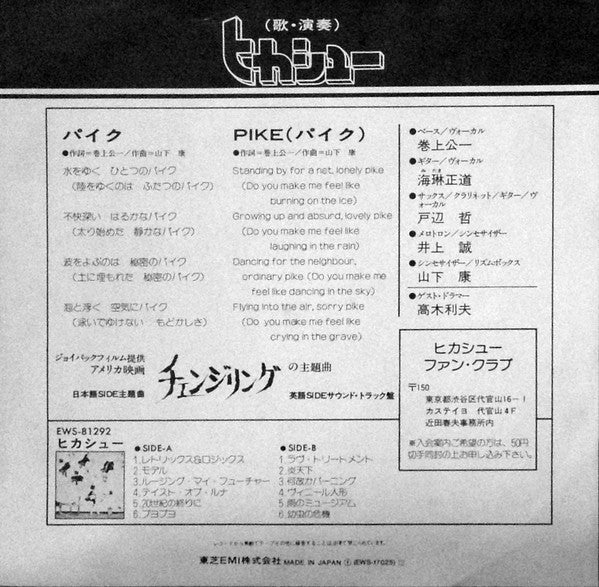 (歌・演奏)
ヒカシュー
パイク
●作詞=巻上公一/作曲=山下 康
水をゆく ひとつのパイク
(陸をゆくのは ふたつのパイク)
不快深い はるかなパイク
(太り始めた 静かなパイク)
波をよぶのは 秘密のパイク
(土に埋もれた 秘密のパイク)
忽と浮く 空気にパイク
(泳いでゆけない もどかしさ)
PIKE(パイク)
●作詞=巻上公一/作曲=山下 康
Standing by for a net, lonely pike
(Do you make me feel like
burning on the ice)
Growing up and absurd, lovely pike
(Do you make me feel like
laughing in the rain)
Dancing for the neighbour,
ordinary pike (Do you make me
feel like dancing in the sky)
Flying into the air, sorry pike
(Do you make me feel like
crying in the grave)
●ベース/ヴォーカル
巻上公一
●ギター/ヴォーカル
海琳正道
●サックス/クラリネット/ギター/ヴォーカル
戸辺 哲
●メロトロン/シンセサイザー
井上 誠
●シンセサイザー/リズムボックス
山下 康
●ゲスト・ドラマー
高木利夫
ジョイパックフィルム提供
アメリカ映画
チェンジリング
の主題曲
日本語SIDE主題曲
英語SIDEサウンド・トラック盤
ヒカシュー
ファン・クラブ
〒150
東京都渋谷区代官山16-1
カステイヨ 代官山4F
近田春夫事務所内
※入会案内ご希望の方は、50円
切手同封の上お申し込み下さい。
EWS-81292
ヒカシュー
●SIDE-A
1.レトリックス&ロジックス
2.モデル
3.ルージング・マイ・フューチャー
4.テイスト・オブ・ルナ
5.20世紀の終りに
6.プヨプヨ
●SIDE-B
1.ラヴ・トリートメント
2.炎天下
3.何故かバーニング
4.ヴィニール人形
5.雨のミュージアム
6.幼虫の危機
レコードから無断でテープその他に録音することは法律で禁じられています。
東芝EMI株式会社 MADE IN JAPAN (EWS-17025)